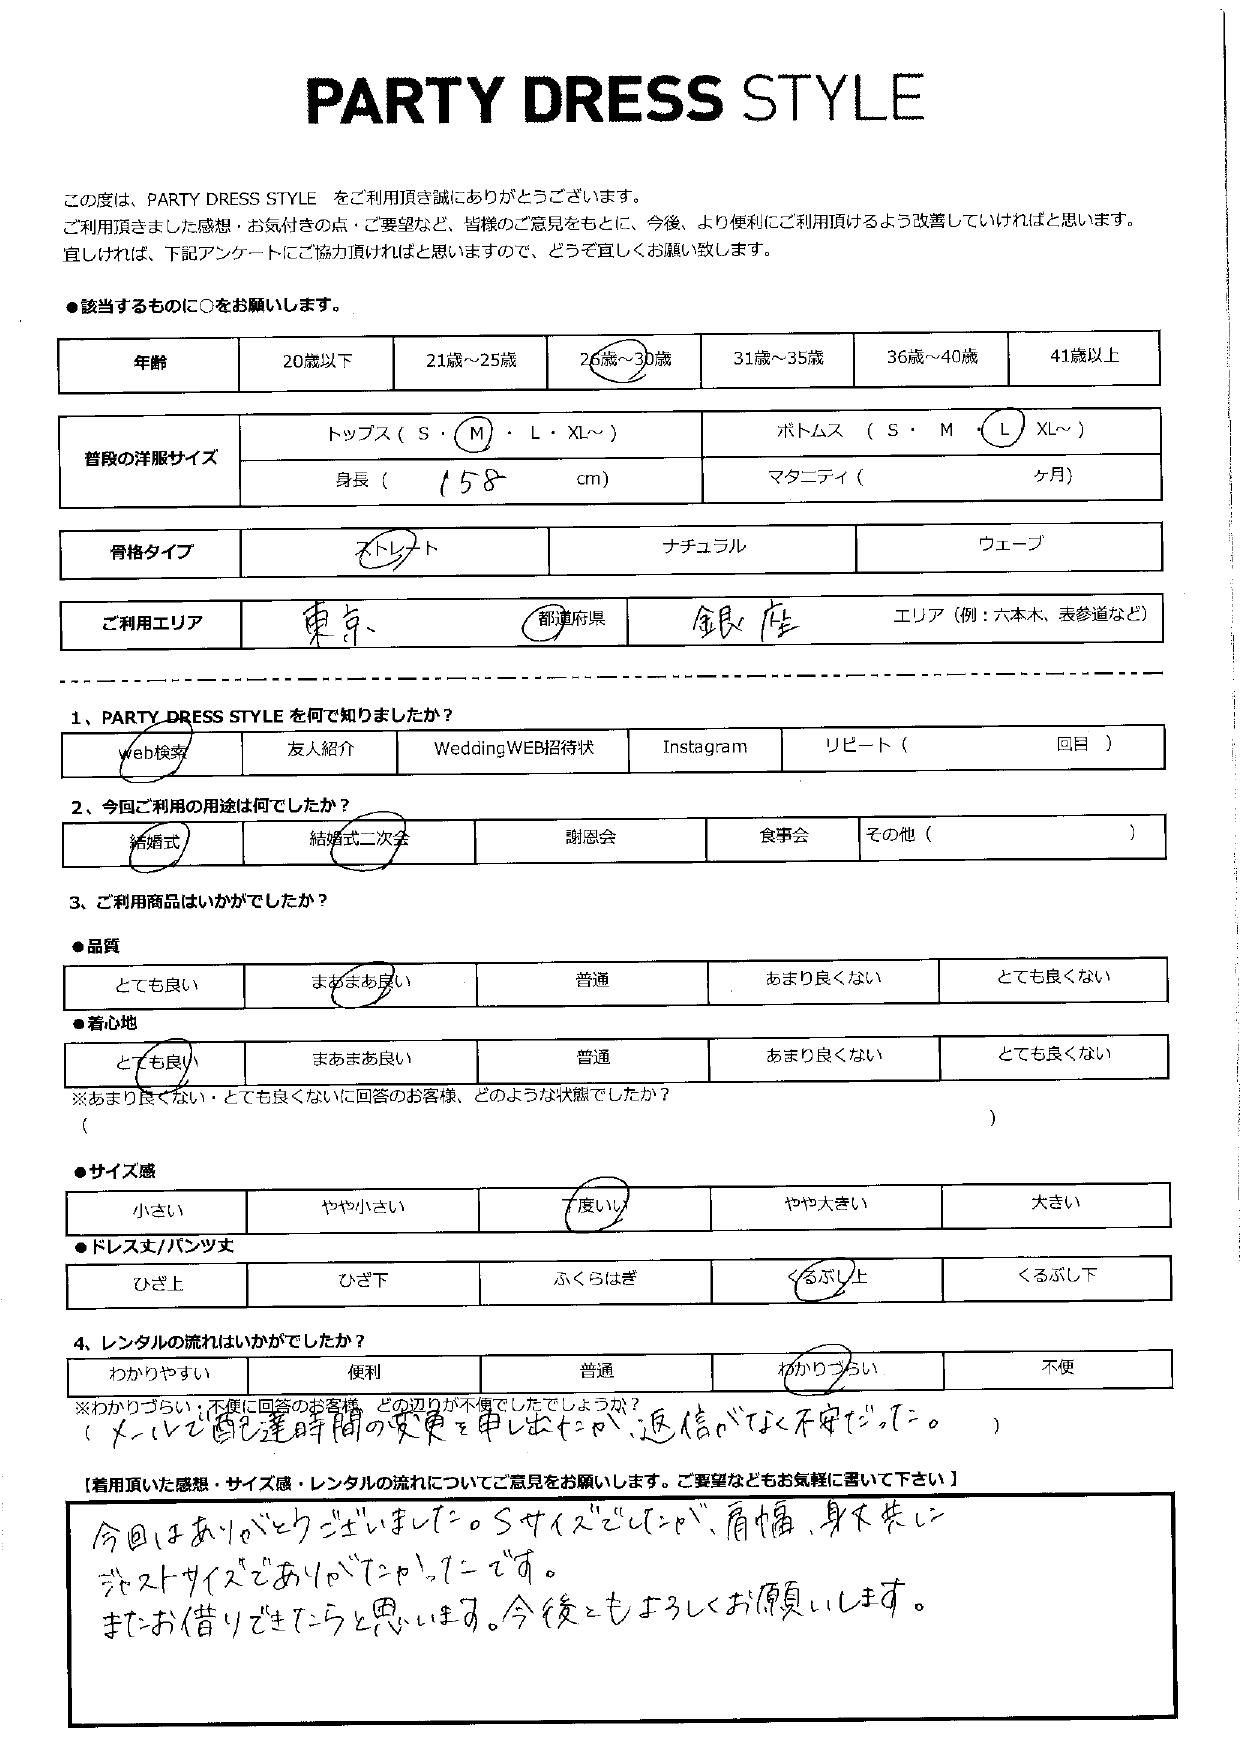 PARTY DRESS STYLE
この度は、PARTY DRESS STYLE をご利用頂き誠にありがとうございます。
ご利用頂きました感想・お気付きの点・ご要望など、皆様のご意見をもとに、今後、より便利にご利用頂けるよう改善していければと思います。
宜しければ、下記アンケートにご協力頂ければと思いますので、どうぞ宜しくお願い致します。
●該当するものに○をお願いします。
年齢 20歳以下 21歳～25歳 26歳～30歳 31歳～35歳 36歳～40歳 41歳以上
普段の洋服サイズ トップス ( S ・ M ・ L ・ XL～ ) ボトムス ( S ・ M ・ L XL～ )
身長 ( 158 cm) マタニティ ( ケ月)
骨格タイプ ストレート ナチュラル ウェーブ
ご利用エリア 東京 都道府県 銀座 エリア (例：六本木、表参道など)
1、PARTY DRESS STYLE を何で知りましたか？
Web検索 友人紹介 WeddingWEB招待状 Instagram リピート ( 回目 )
2、今回ご利用の用途は何でしたか？
結婚式 結婚式二次会 謝恩会 食事会 その他 ( )
3、ご利用商品はいかがでしたか？
●品質
とても良い まあまあ良い 普通 あまり良くない とても良くない
●着心地
とても良い まあまあ良い 普通 あまり良くない とても良くない
※あまり良くない・とても良くないに回答のお客様、どのような状態でしたか？
( )
●サイズ感
小さい やや小さい 丁度いい やや大きい 大きい
●ドレス丈/パンツ丈
ひざ上 ひざ下 ふくらはぎ くるぶし上 くるぶし下
4、レンタルの流れはいかがでしたか？
わかりやすい 便利 普通 わかりづらい 不便
※わかりづらい・不便に回答のお客様、どの辺りが不便でしたでしょうか？
( メールで配達時間の変更を申し出たが、返信がなく不安だった。 )
【着用頂いた感想・サイズ感・レンタルの流れについてご意見をお願いします。ご要望などもお気軽に書いて下さい】
今回はありがとうございました。Sサイズでしたが、肩幅、身丈共に
ジャストサイズでありがたかったです。
またお借りできたらと思います。今後ともよろしくお願いします。